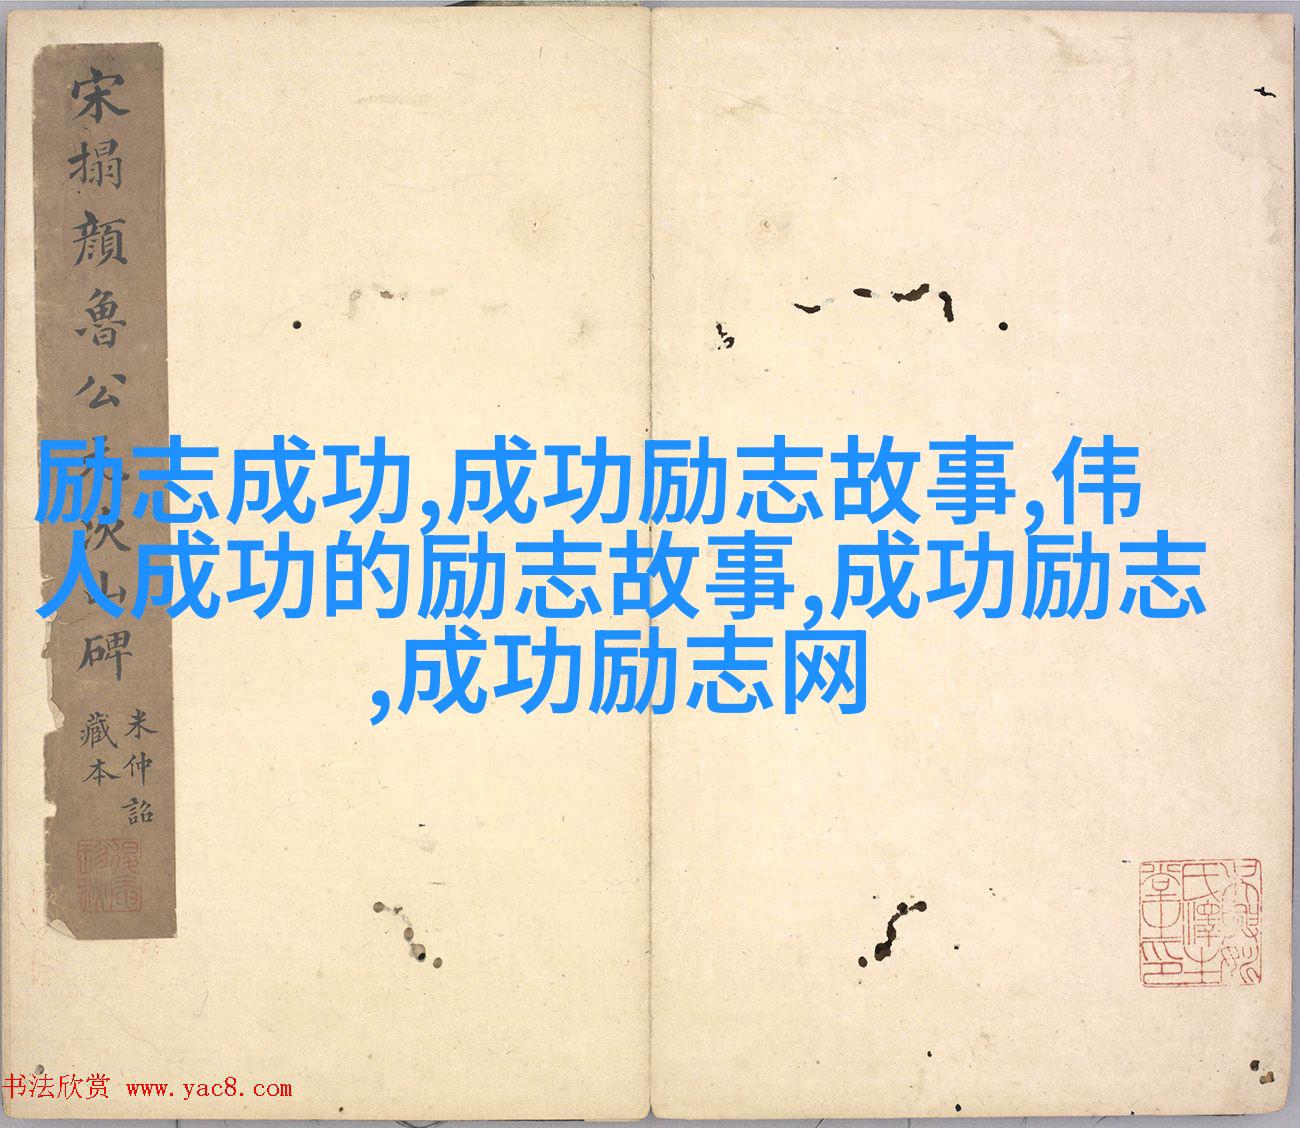 宋搨顔魯公元次山碑
米仲詔
藏本
励志成功,成功励志故事,伟
人成功的励志故事,成功励志
,成功励志网
书法欣赏 www.yac8.com